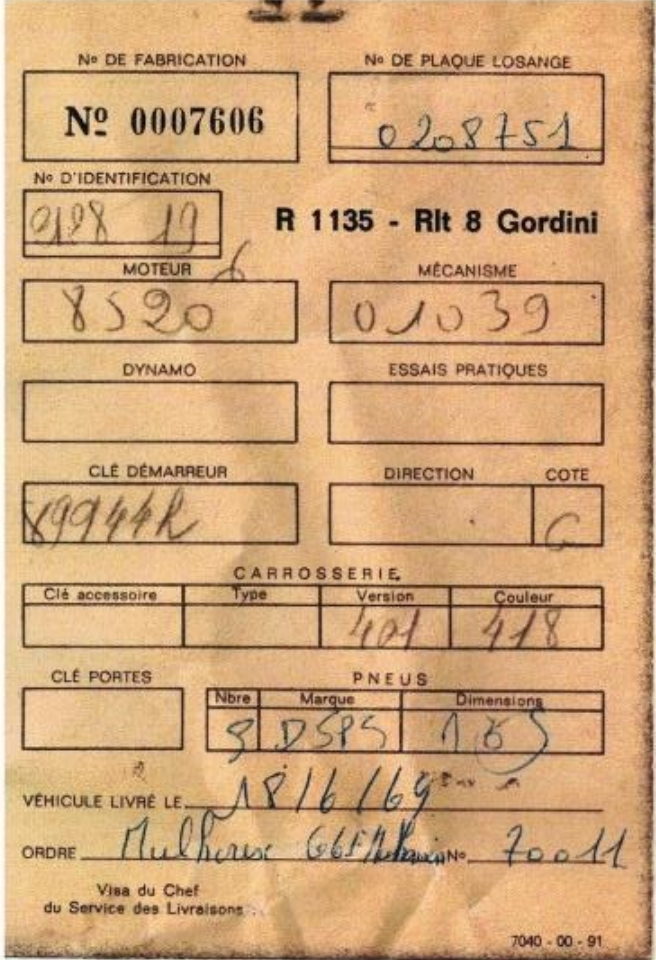 Nº DE FABRICATION
Nº DE PLAQUE LOSANGE
Nº 0007606
0208751
Nº D'IDENTIFICATION
R 1135 - Rlt 8 Gordini
MOTEUR
MÉCANISME
8520
01039
DYNAMO
ESSAIS PRATIQUES
CLÉ DÉMARREUR
DIRECTION
COTE
G
CARROSSERIE
Clé accessoire Type Version Couleur
401 418
CLÉ PORTES
PNEUS
Nbre Marque Dimensions
VÉHICULE LIVRÉ LE 18/6/69
ORDRE Mulhouse Nº 70011
Visa du Chef
du Service des Livraisons
7040 - 00 - 91